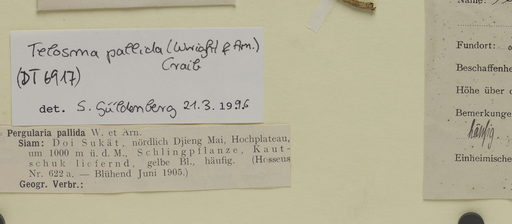 Telosma pallida (Wright & Arn.)
Craib
(DT 6917)
det. S. Güldenberg 21.3.1996
Pergularia pallida W. et Arn.
Siam: Doi Sukät, nördlich Djieng Mai, Hochplateau,
um 1000 m ü. d. M., Schlingpflanze, Kaut-
schuk liefernd, gelbe Bl., häufig. (Hosseus
Nr. 622 a. — Blühend Juni 1905.)
Geogr. Verbr.:
Fundort:
Beschaffenhe
Höhe über d
Bemerkunge
häufig
Einheimische